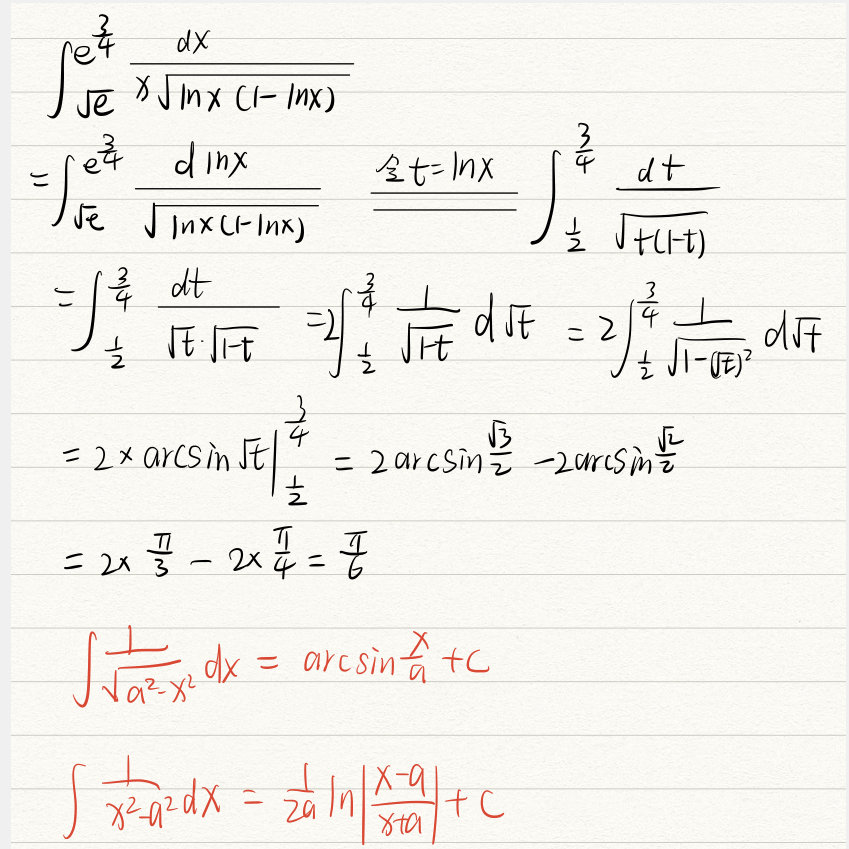 ∫_{√e}^{e^{3/4}} dx / (x√(lnx(1-lnx)))
= ∫_{√e}^{e^{3/4}} d lnx / √(lnx(1-lnx)) 令t=lnx ∫_{1/2}^{3/4} dt / √(t(1-t))
= ∫_{1/2}^{3/4} dt / (√t·√(1-t)) = 2∫_{1/2}^{3/4} 1/√(1-t) d√t = 2∫_{1/2}^{3/4} 1/√(1-(√t)²) d√t
= 2×arcsin√t |_{1/2}^{3/4} = 2arcsin √3/2 - 2arcsin √2/2
= 2× π/3 - 2× π/4 = π/6
∫ 1/√(a²-x²) dx = arcsin x/a + C
∫ 1/(x²-a²) dx = 1/2a ln|(x-a)/(x+a)| + C